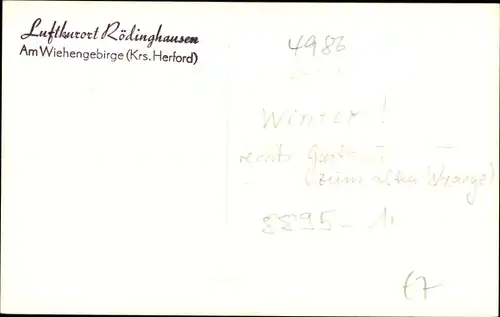 Luftkurort Rödinghausen
Am Wiehengebirge (Krs. Herford)
4986
Winter!
rechts
(zum alten
8895-1